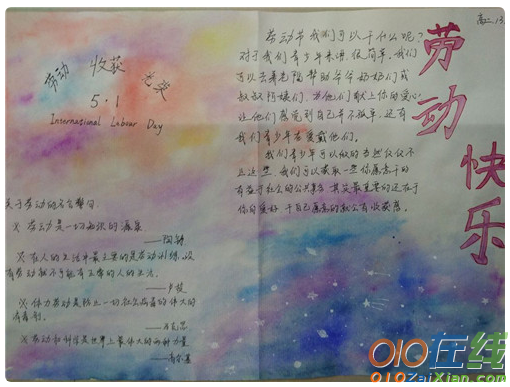 高二.13
劳动 收获 光荣
5·1
International Labour Day
关于劳动的名言警句
※ 劳动是一切知识的源泉
——陶铸
※ 在人的生活中最主要的是劳动训练，没
有劳动就不可能有正常的人的生活。
——卢梭
※ 体力劳动是防止一切社会病毒的伟大的
消毒剂。
——马克思
※ 劳动和科学是世界上最伟大的两种力量
——高尔基
劳动节我们可以干什么呢？
对于我们青少年来讲，很简单，我们
可以去养老院帮助爷爷奶奶们或
叔叔阿姨们，为他们献上你的爱心
让他们感觉到自己并不孤单，还有
我们青少年在爱戴他们。
我们青少年可以做的当然仅仅不
止这些，我们可以获取一些你愿意干的
有益于社会的公共事务，其实最重要的还在于
你的喜好，干自己愿意的就会有收获感。
劳动快乐
010在线
010ZaiXian.com